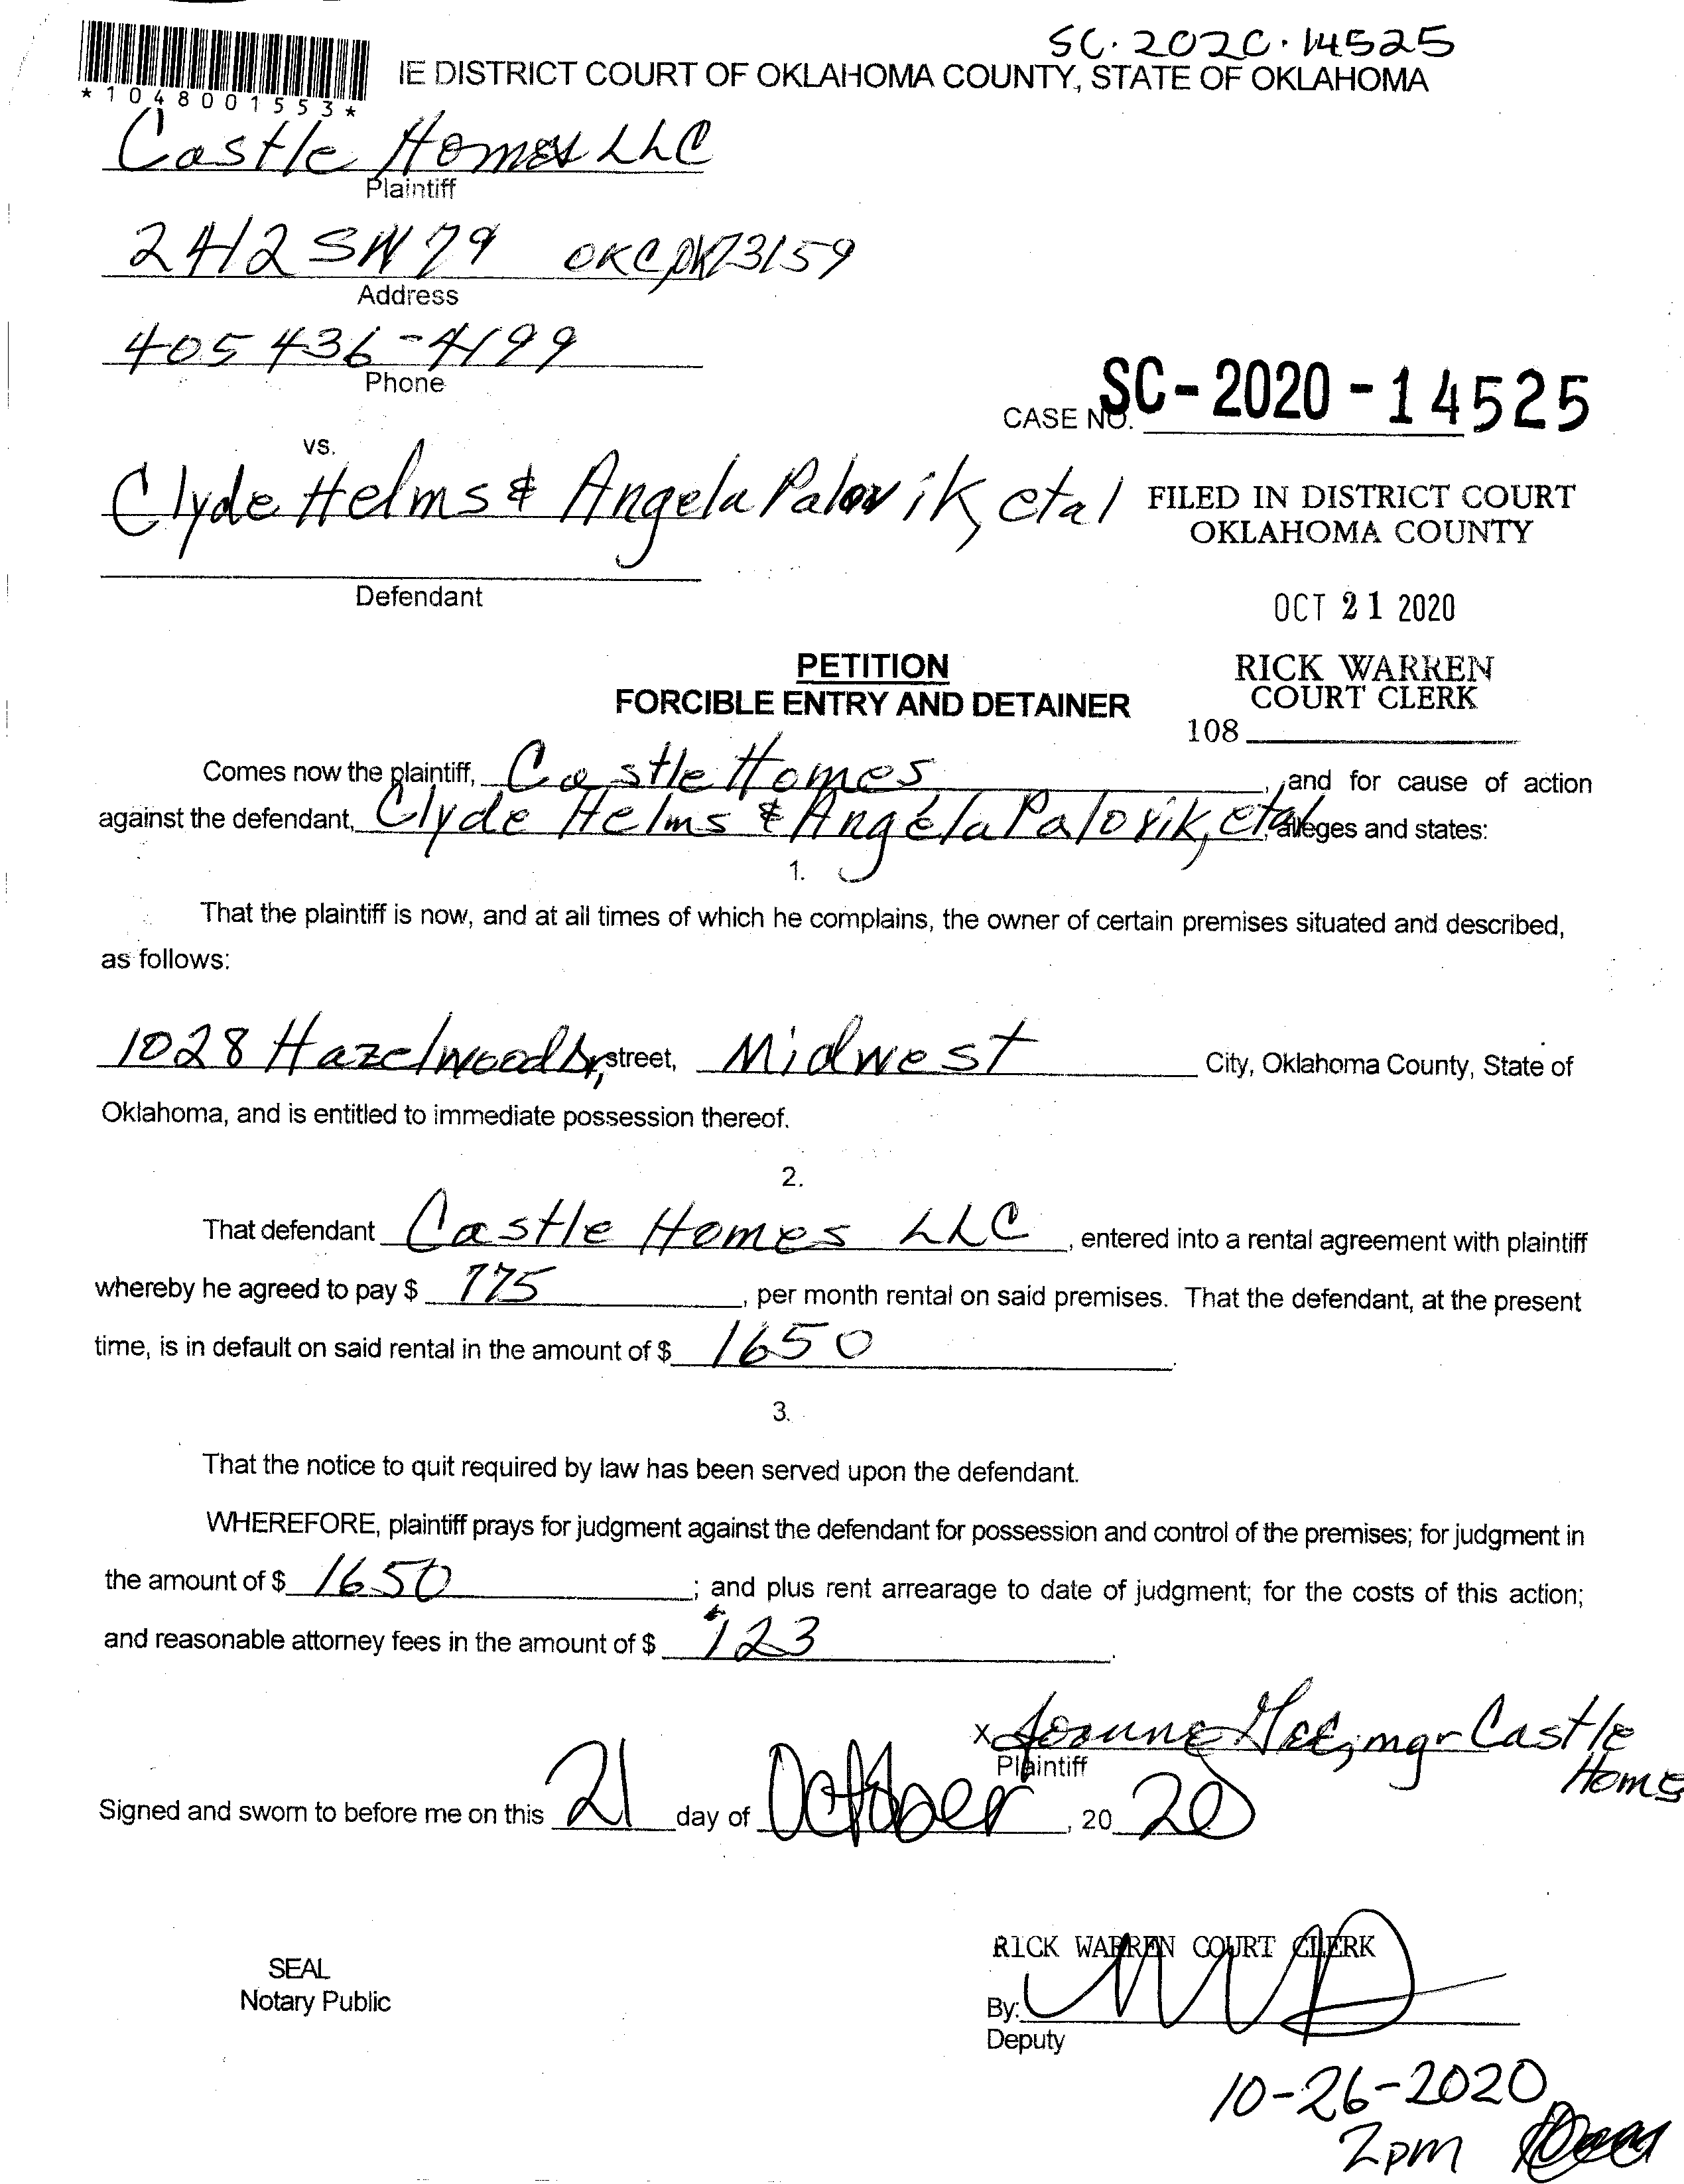 SC. 2020. 14525
IE DISTRICT COURT OF OKLAHOMA COUNTY, STATE OF OKLAHOMA
*1048001553*
Castle Homes LLC
Plaintiff
2412 SW 79 OKC OK 73159
Address
405 436-4199
Phone
CASE NO. SC-2020-14525
vs.
Clyde Helms & Angela Palovik, etal
FILED IN DISTRICT COURT
OKLAHOMA COUNTY
Defendant
OCT 21 2020
PETITION
FORCIBLE ENTRY AND DETAINER
RICK WARREN
COURT CLERK
108
Comes now the plaintiff, Castle Homes, and for cause of action
against the defendant, Clyde Helms & Angela Palovik, etal, alleges and states:
1.
That the plaintiff is now, and at all times of which he complains, the owner of certain premises situated and described,
as follows:
1028 Hazelwood Dr, street, Midwest City, Oklahoma County, State of
Oklahoma, and is entitled to immediate possession thereof.
2.
That defendant Castle Homes LLC, entered into a rental agreement with plaintiff
whereby he agreed to pay $ 775, per month rental on said premises. That the defendant, at the present
time, is in default on said rental in the amount of $ 1650.
3.
That the notice to quit required by law has been served upon the defendant.
WHEREFORE, plaintiff prays for judgment against the defendant for possession and control of the premises; for judgment in
the amount of $ 1650; and plus rent arrearage to date of judgment; for the costs of this action;
and reasonable attorney fees in the amount of $ 123.
x Joanne mgr Castle
Homes
Plaintiff
Signed and sworn to before me on this 21 day of October, 20 20
SEAL
Notary Public
RICK WARREN COURT CLERK
By:
Deputy
10-26-2020
2pm